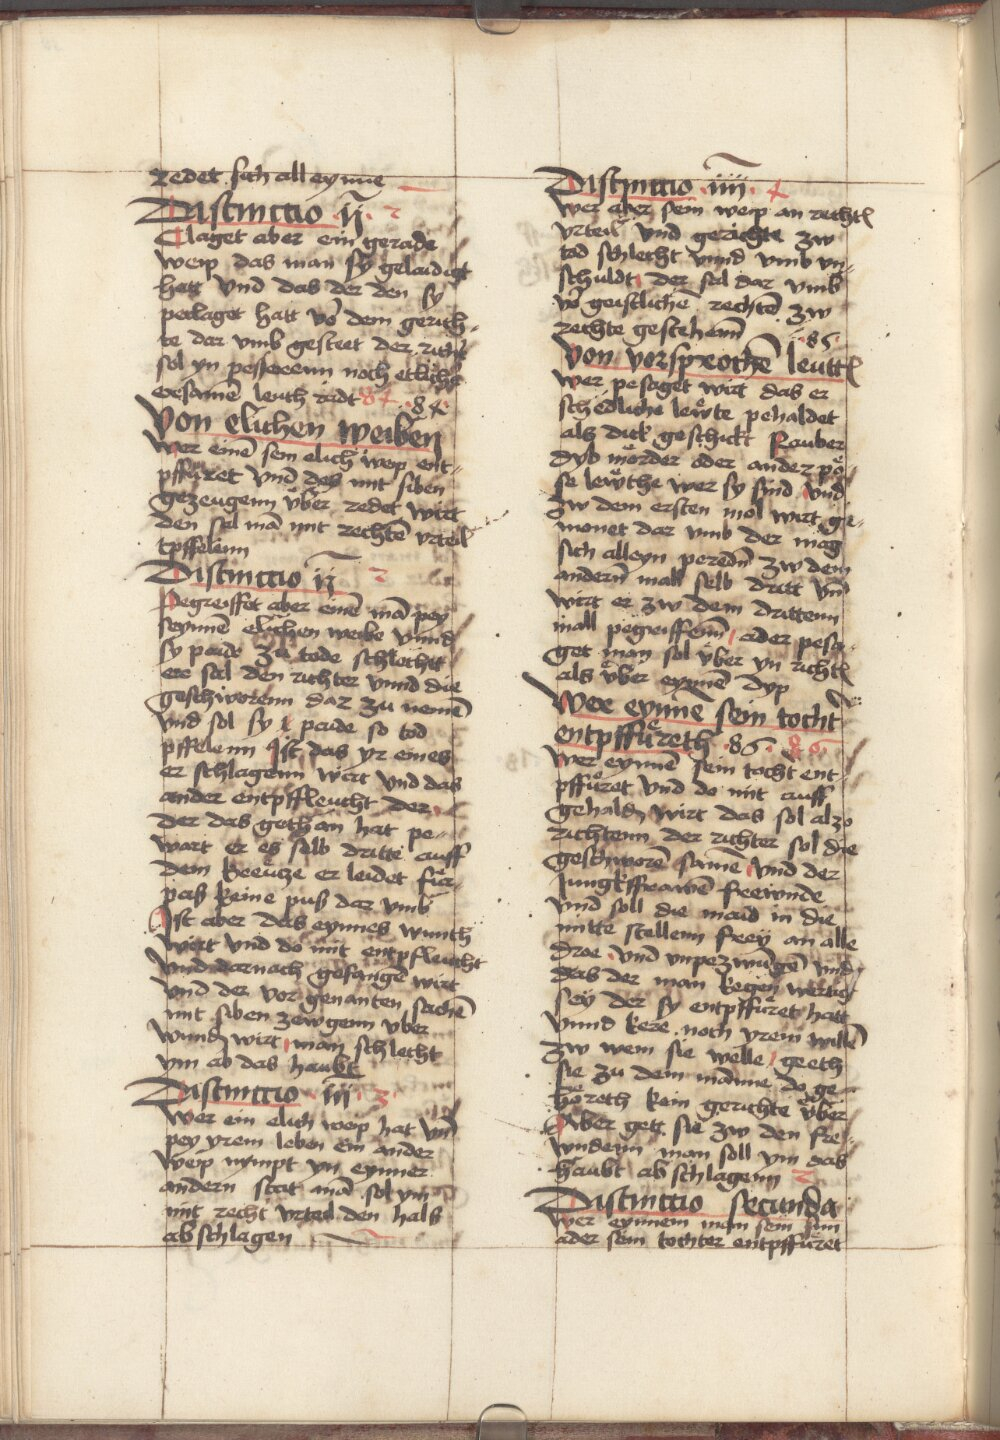 redet sich alleynne
Distinctio ij · 2
Claget aber ein gerade
weip das man sy gelaidigt
hatt vnd das der den sy
peclaget hatt vō dem gerich-
te dar vmb gesteet der richt
sol yn pesserenn noch etlicher
ersamē leuth radt 84 · 84 ·
Von elichen weiben
Wer einē sein elich weip ent-
pffůret vnd des mit siben
gezeugenn vͤber redet wirt
den sal mā mit rechtē vrteil
tpffelenn
Distinctio ij 2
Pegreiffet aber einē mā pey
seynnē elichen weibe vnnd
sy paide zu tode schlechtt
ere sal den richter vnnd die
geschworenn dar zu nemē
vnd sol sy paide so tod
pffelenn Ist das yr eines
er schlagenn wirt vnd das
ander entpffleucht der
der das gethan hat pe-
wart er es selb dritte auff
dem kreucze er leidet fur-
pas keine puß dar vmb
Ist aber das eynnes wunth
wirt vnd do mit entpfleucht
vnd darnach gefangē wirt
vnd der vor genanten sachē
mit siben zewgenn vber
wund wirt man schlecht
ym ab das haubt
Distinctio iij 3
Wer ein elich weip hat vnd
pey yrem leben ein ander
weip nympt yn eynner
andern stat mā sol ym
mit recht vrteil den hals
ab schlagen
Distinctio iiij · 4
Wer aber sein weip an rechtꝭ
vrteil vnd gerichte zw
tod schlecht vnnd vmb vn-
schuldt der sal dar vmb
vō geistlichē rechtē zw
rechte gestehenn
85 ·
Von vorsprochē leuttꝭ
Wer pesaget wirt das er
schedliche lewte pehaldet
als dick geschickt Rauber
dyb mörder oder ander pö-
se lewthe wer sy sind vnd
zw dem ersten mol wirt ge-
monet dar vmb der mag
sich alleyn peredn zw dem
andern mall selb dritt vnd
wirt er zw dem drittenn
mall pegreiffenn ader pesa-
get man sol vͤber yn richtꝭ
als vͤber eynnē dyp
Wer eynnē sein tocht
entpffůreth · 86 · 86
Wer eynnē sein tocht ent
pffůret vnd do mit auff
gehaldn wirt das sol alzo
richtenn der richter sol die
geschworē samē vnd der
Jungkffrawē frewnde
vnd soll die maid in die
mitte stellenn frey an alle
droe vnd vnpezwungē vnd
das der man kegen wertig
sey der sy entpffuret hatt
vnnd kere noch yrem willē
zw wem sie welle geeth
sie zu dem manne do ge-
höreth kein gerichte vͤber
Aber gett sie zw den fre-
wndenn man soll ym das
haubt ab schlagenn 2
Distinctio secunda
Wer eynnem man sein sun
ader sein tochter entpffůret